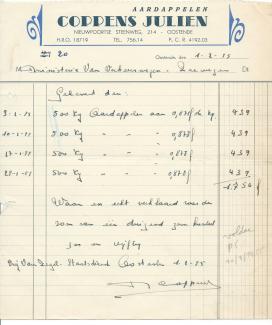 AARDAPPELEN
COPPENS JULIEN
NIEUWPOORTSE STEENWEG, 214 - OOSTENDE
H.R.O. 18719 TEL. 756.14 P. C. R. 4192.03
20 Oostende, den 1-2-55
Ministerie Van Verkeerswezen - Zeewezen
Geleverd den:
3-1-55 500 Kg Aardappelen aan 0,878 de kg 439
10-1-55 500 Kg " " 0,878 439
17-1-55 500 Kg " " 0,878 439
500 Kg " " 0,878 439
1.756 f
Waar en echt verklaard voor de
som van een duizend zeven honderd
zes en vijftig
Oostende 1-2-55
J Coppens